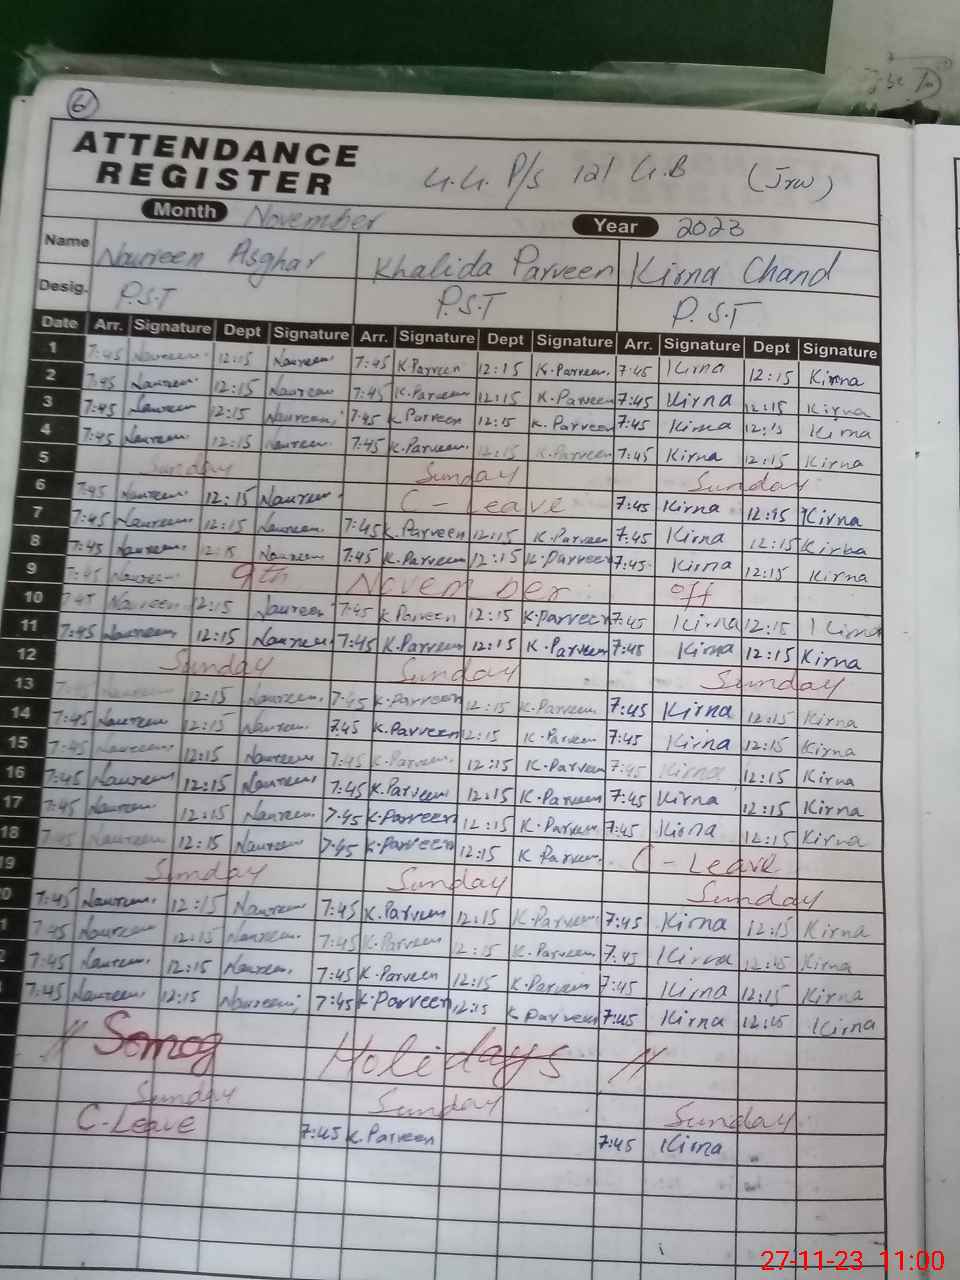 6
ATTENDANCE
REGISTER
G.G. P/s 121 G.B (Jrw)
Month November Year 2023
Name Naureen Asghar Khalida Parveen Kirna Chand
Desig. P.S.T P.S.T P.S.T
Date Arr. Signature Dept Signature Arr. Signature Dept Signature Arr. Signature Dept Signature
1 7:45 Naureen 12:15 Naureen 7:45 K.Parveen 12:15 K.Parveen 7:45 Kirna 12:15 Kirna
2 7:45 Naureen 12:15 Naureen 7:45 K.Parveen 12:15 K.Parveen 7:45 Kirna 12:15 Kirna
3 7:45 Naureen 12:15 Naureen 7:45 K Parveen 12:15 K.Parveen 7:45 Kirna 12:15 Kirna
4 7:45 Naureen 12:15 Naureen 7:45 K.Parveen 12:15 K.Parveen 7:45 Kirna 12:15 Kirna
5 Sunday Sunday Sunday
6 7:45 Naureen 12:15 Naureen C-Leave 7:45 Kirna 12:15 Kirna
7 7:45 Naureen 12:15 Naureen 7:45 K.Parveen 12:15 K.Parveen 7:45 Kirna 12:15 Kirna
8 7:45 Naureen 12:15 Naureen 7:45 K.Parveen 12:15 K.Parveen 7:45 Kirna 12:15 Kirna
9 7:45 Naureen 9th November off
10 7:45 Naureen 12:15 Naureen 7:45 K Parveen 12:15 K.parveen 7:45 Kirna 12:15 Kirna
11 7:45 Naureen 12:15 Naureen 7:45 K.Parveen 12:15 K.Parveen 7:45 Kirna 12:15 Kirna
12 Sunday Sunday Sunday
13 7:45 Naureen 12:15 Naureen 7:45 K.Parveen 12:15 K.Parveen 7:45 Kirna 12:15 Kirna
14 7:45 Naureen 12:15 Naureen 7:45 K.Parveen 12:15 K.Parveen 7:45 Kirna 12:15 Kirna
15 7:45 Naureen 12:15 Naureen 7:45 K.Parveen 12:15 K.Parveen 7:45 Kirna 12:15 Kirna
16 7:45 Naureen 12:15 Naureen 7:45 K.Parveen 12:15 K.Parveen 7:45 Kirna 12:15 Kirna
17 7:45 Naureen 12:15 Naureen 7:45 K.Parveen 12:15 K.Parveen 7:45 Kirna 12:15 Kirna
18 7:45 Naureen 12:15 Naureen 7:45 K.Parveen 12:15 K Parveen C-Leave
19 Sunday Sunday Sunday
0 7:45 Naureen 12:15 Naureen 7:45 K.Parveen 12:15 K.Parveen 7:45 Kirna 12:15 Kirna
1 7:45 Naureen 12:15 Naureen 7:45 K.Parveen 12:15 K.Parveen 7:45 Kirna 12:45 Kirna
2 7:45 Naureen 12:15 Naureen 7:45 K.Parveen 12:15 K.Parveen 7:45 Kirna 12:15 Kirna
7:45 Naureen 12:15 Naureen 7:45 K.Parveen 12:15 K Parveen 7:45 Kirna 12:15 Kirna
// Smog Holidays //
Sunday Sunday Sunday
C-Leave 7:45 K.Parveen 7:45 Kirna
27-11-23 11:00